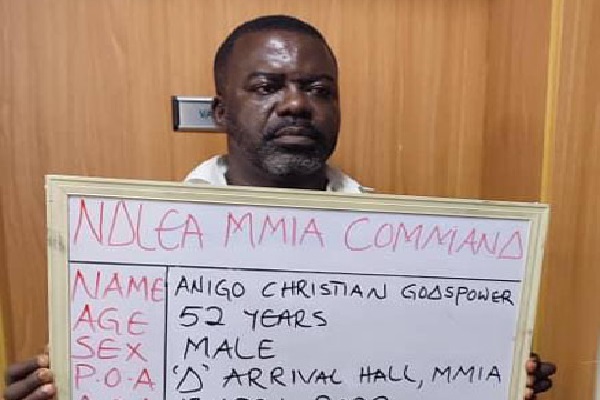 NDLEA MMIA COMMAND
NAME ANIGO CHRISTIAN GODSPOWER
AGE 52 YEARS
SEX MALE
P.O.A 'D' ARRIVAL HALL, MMIA